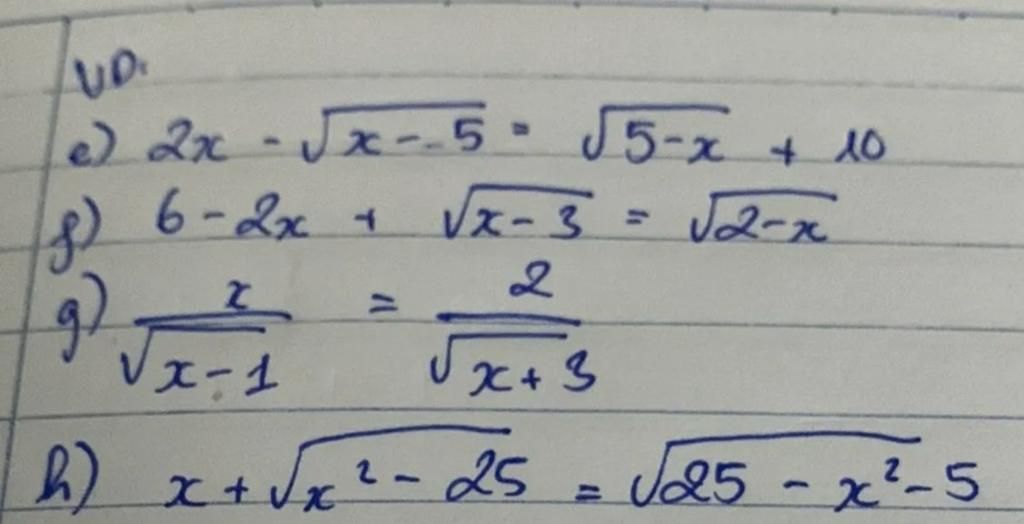 VD.
e) 2x - √(x - 5) = √(5-x) + 10
f) 6 - 2x + √(x - 3) = √(2-x)
g) x/√(x-1) = 2/√(x+3)
h) x + √(x² - 25) = √(25 - x²) - 5